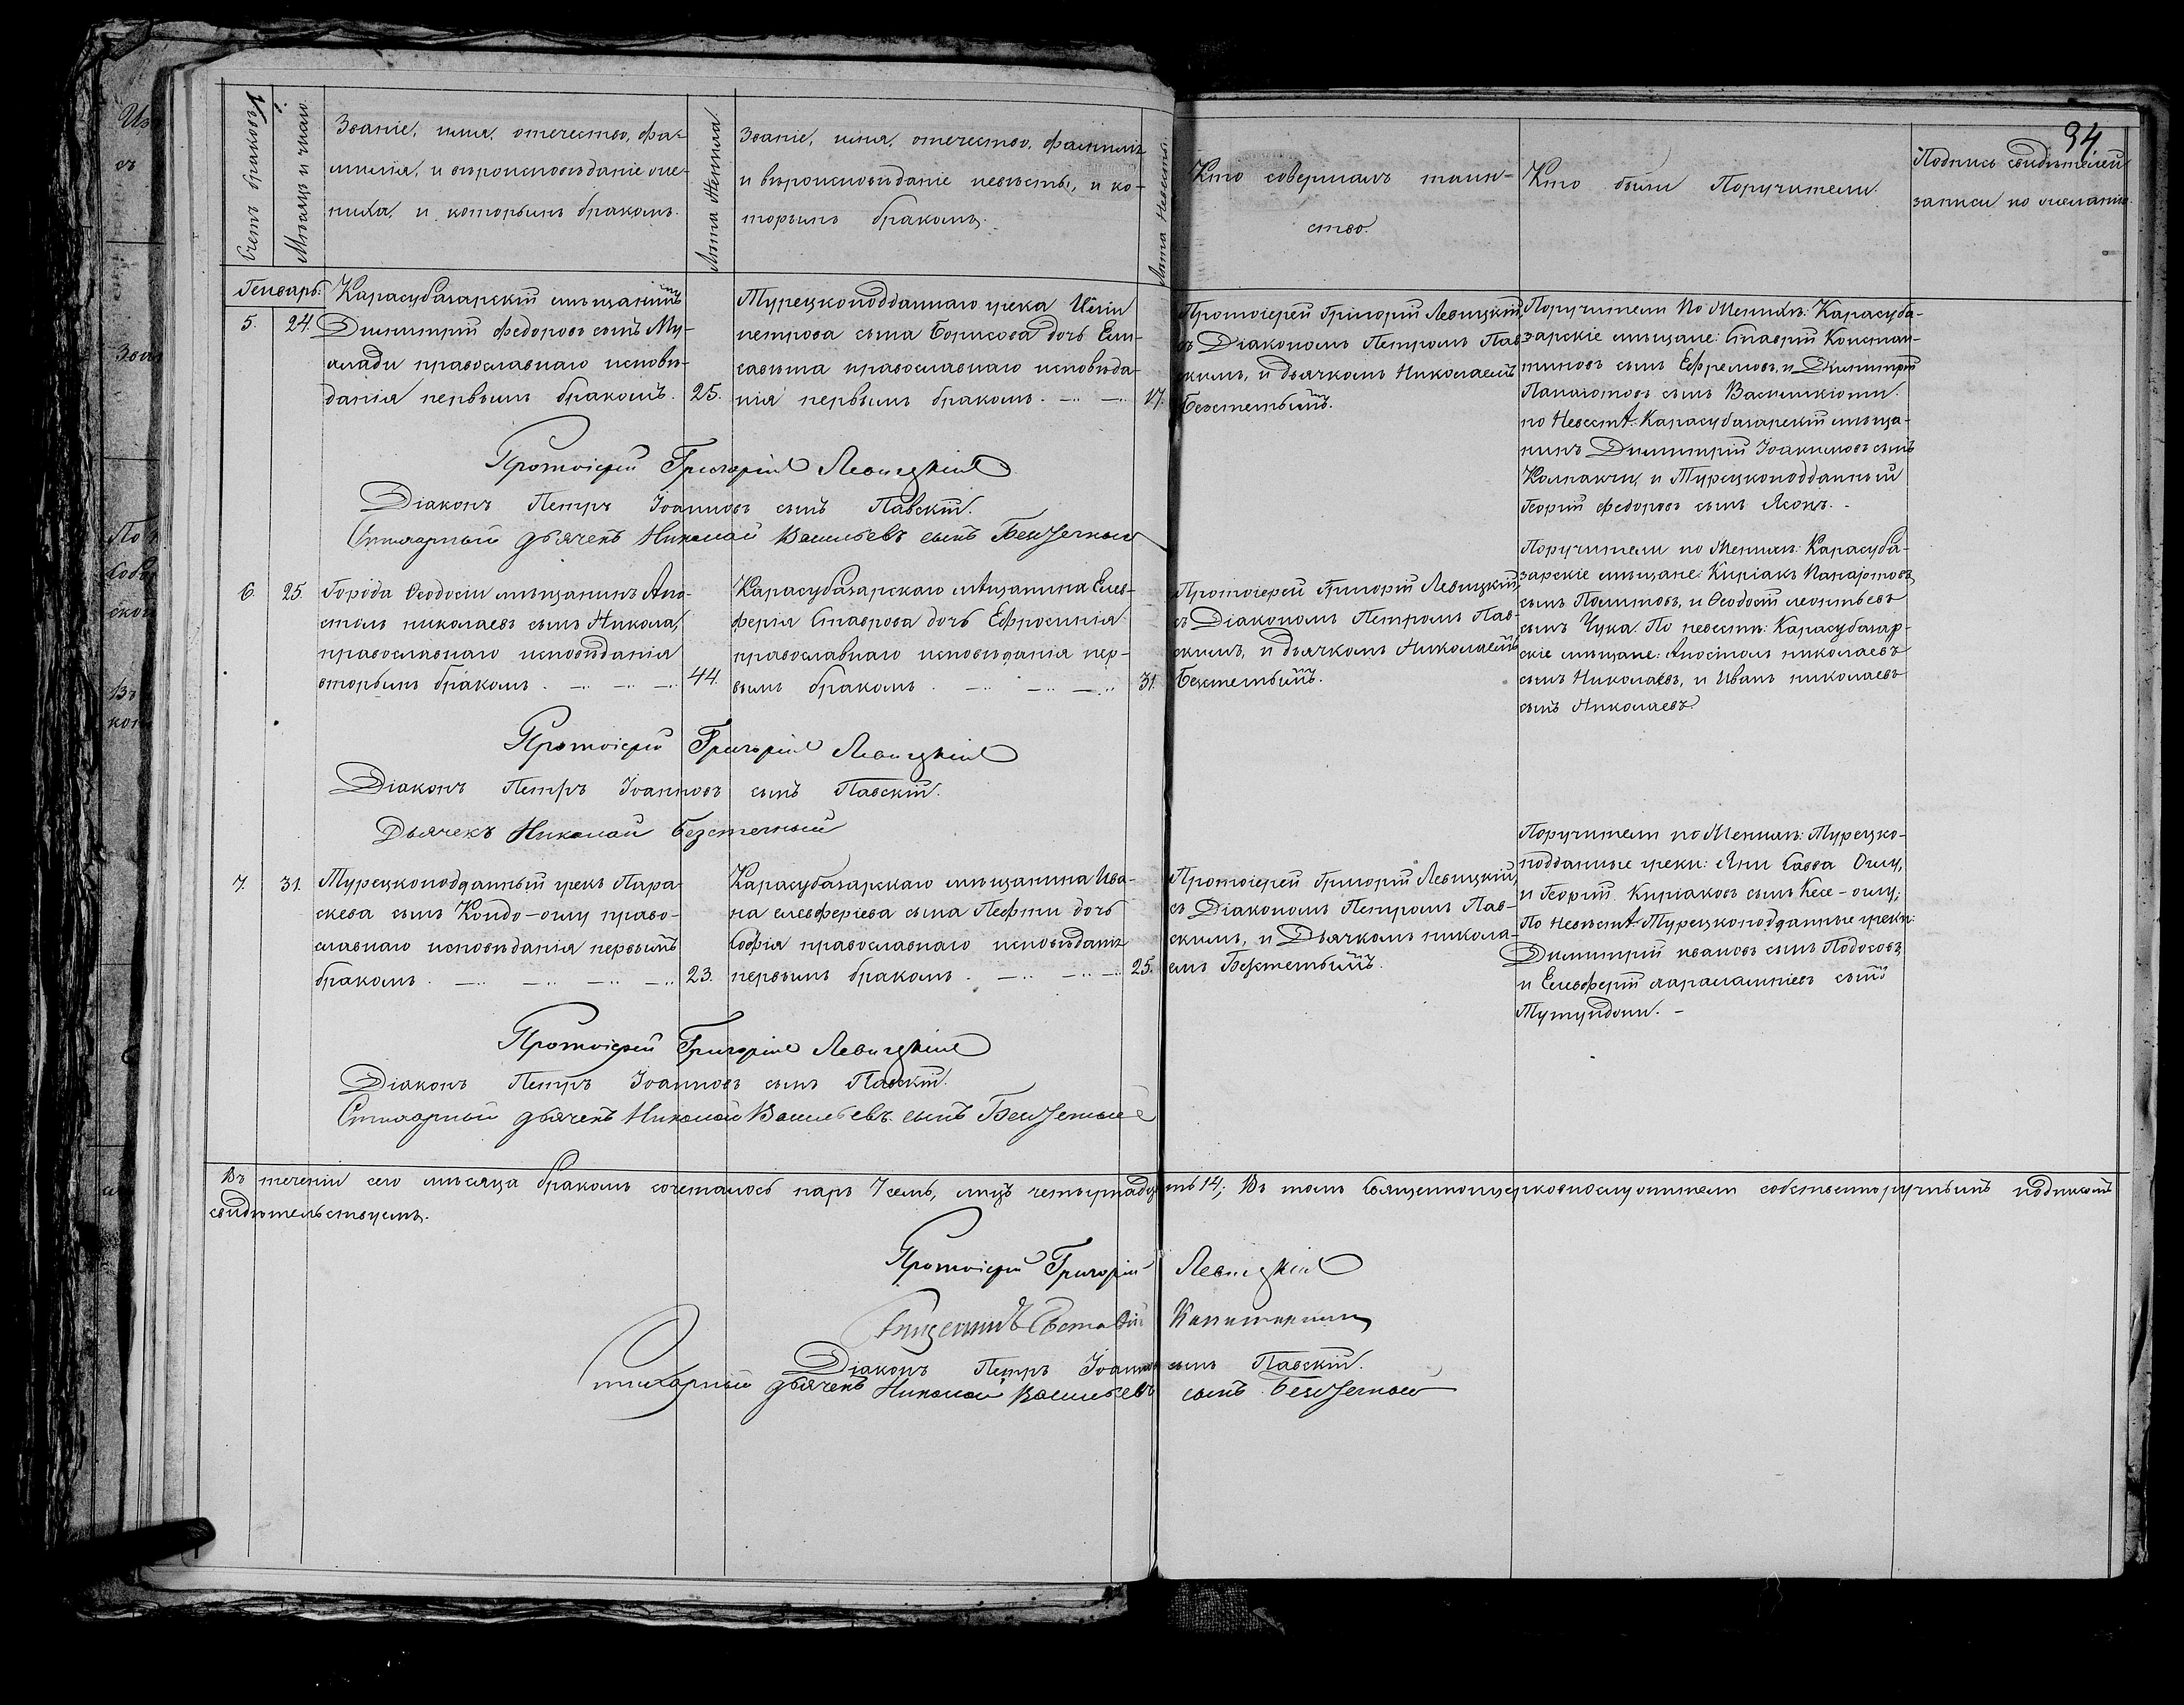 34
Счетъ браковъ
Мѣсяцъ и число
Званіе, имя, отечество, фа-
милія, и вѣроисповѣданіе же-
ниха, и которымъ бракомъ.
Лѣта Жениха
Званіе, имя, отечество, фамилія
и вѣроисповѣданіе невѣсты, и ко-
торымъ бракомъ.
Лѣта Невѣсты
Кто совершалъ таин-
ство.
Кто были Поручители.
Подпись свидѣтелей
записи по желанію.
Генварь.
5.
24.
Карасубазарскій мѣщанинъ
Димитрій Федоровъ сынъ Му-
далади православнаго исповѣ-
данія первымъ бракомъ.
25.
Турецкоподданнаго грека Иліи
петрова сына Борисова дочь Ели-
савета православнаго исповѣда-
нія первымъ бракомъ.
17.
Протоіерей Григорій Левицкій,
съ Діакономъ Петромъ Пав-
скимъ, и дьячкомъ Николаемъ
Безстетнымъ.
Поручители По Женихѣ: Карасуба-
зарскіе мѣщане: Ставрій Констан-
тиновъ сынъ Ефремовъ, и Димитрій
Панаіотовъ сынъ
по Невестѣ: Карасубазарскій мѣща-
нинъ Димитрій Іоакимовъ сынъ
Колпакчи, и Турецкоподданный
Георгій Федоровъ сынъ Ясонъ.
Протоіерей Григорій Левицкій
Діаконъ Петръ Іоанновъ сынъ Павскій.
Стихарный дьячекъ Николай Васильевъ сынъ
6.
25.
Города Ѳеодосіи мѣщанинъ Апо-
столъ николаевъ сынъ Никола,
православнаго исповѣданія
вторымъ бракомъ.
44.
Карасубазарскаго мѣщанина Елев-
ферія Ставрова дочь Ефросинія
православнаго исповѣданія пер-
вымъ бракомъ.
31.
Протоіерей Григорій Левицкій,
съ Діакономъ Петромъ Пав-
скимъ, и дьячкомъ Николаемъ
Безстетнымъ.
Поручители по Женихѣ: Карасуба-
зарскіе мѣщане: Киріакъ Панаіотовъ
сынъ Политовъ, и Ѳеодосій леонтьевъ
сынъ Чука. По невестѣ: Карасубазар-
скіе мѣщане: Апостолъ николаевъ
сынъ Николаевъ, и Иванъ николаевъ
сынъ Николаевъ.
Протоіерей Григорій Левицкій
Діаконъ Петръ Іоанновъ сынъ Павскій.
Дьячекъ Николай Безстетный
7.
31.
Турецкоподданный грекъ Пара-
скева сынъ Кондо-оглу право-
славнаго исповѣданія первымъ
бракомъ.
23.
Карасубазарскаго мѣщанина Ива-
на елевферіева сына Лефти дочь
Софія православнаго исповѣданія
первымъ бракомъ.
25.
Протоіерей Григорій Левицкій,
съ Діакономъ Петромъ Пав-
скимъ, и Дьячкомъ никола-
емъ Безстетнымъ.
Поручители по Женихѣ: Турецко-
подданные греки: Яни Савва Оглу,
и Георгій Киріаковъ сынъ Кесе-оглу;
По Невѣстѣ Турецкоподданные греки:
Димитрій ивановъ сынъ Подосовъ,
и Елевферій харалампіевъ сынъ
Тутундони.
Протоіерей Григорій Левицкій
Діаконъ Петръ Іоанновъ сынъ Павскій.
Стихарный дьячекъ Николай Васильевъ сынъ
Въ теченіи сего мѣсяца бракомъ сочеталось паръ 7 семь, лицъ четырнадцать 14; Въ томъ Священноцерковнослужители собственноручнымъ подписомъ
свидѣтельствуемъ.
Протоіерей Григорій Левицкій
Священникъ Евстафій
Діаконъ Петръ Іоанновъ сынъ Павскій.
Стихарный дьячекъ Николай Васильевъ сынъ